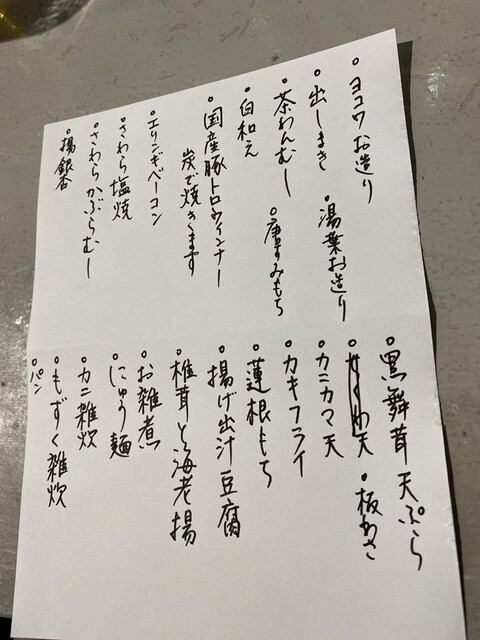 ○ヨコワお造り
○湯葉お造り
○出しまき
○茶わんむし
○唐すみもち
○白和え
○国産豚トロウインナー
炭で焼きます
○エリンギベーコン
○さわら塩焼
○さわらかぶらむし
○揚銀杏
○黒舞茸天ぷら
○板わさ
天
○カニカマ天
○カキフライ
○蓮根もち
○揚げ出汁豆腐
○椎茸と海老揚
○お雑煮
○にゅう麺
○カニ雑炊
○もずく雑炊
○パン